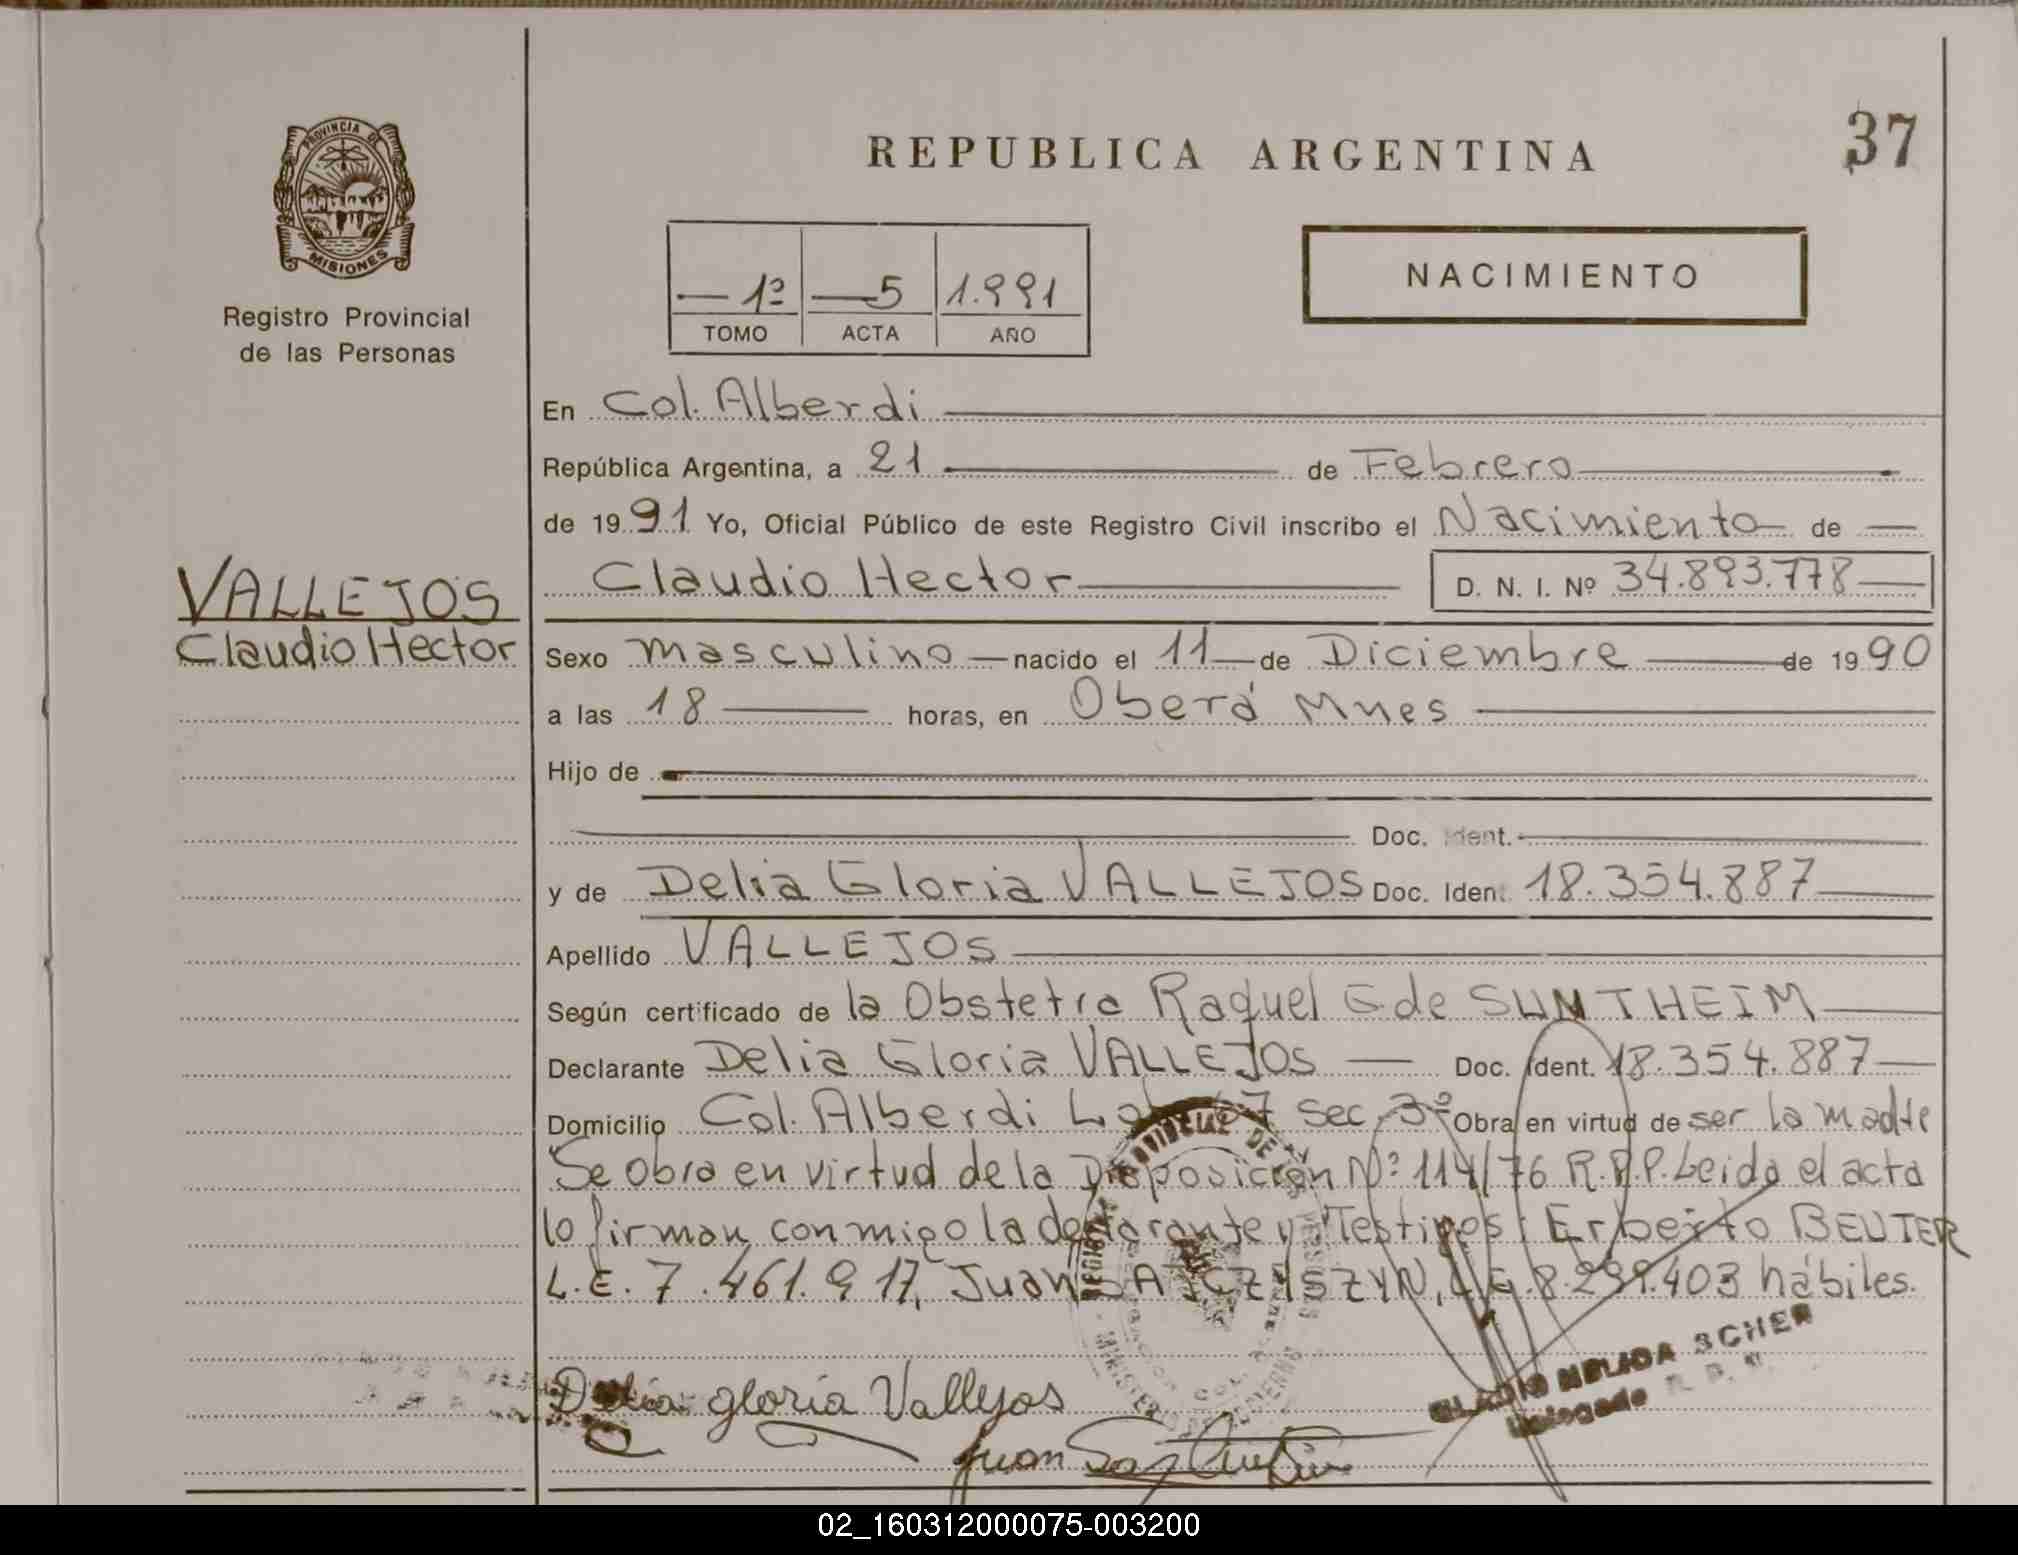 PROVINCIA DE
MISIONES
Registro Provincial
de las Personas
VALLEJOS
Claudio Hector
REPUBLICA ARGENTINA
37
1º 5 1.991
TOMO ACTA AÑO
NACIMIENTO
En Col. Alberdi
República Argentina, a 21 de Febrero
de 1991 Yo, Oficial Público de este Registro Civil inscribo el Nacimiento de
Claudio Hector D. N. I. Nº 34.893.778
Sexo masculino nacido el 11 de Diciembre de 1990
a las 18 horas, en Oberá Mnes
Hijo de
Doc. Ident.
y de Delia Gloria VALLEJOS Doc. Ident. 18.354.887
Apellido VALLEJOS
Según certificado de la Obstetra Raquel G de SUNTHEIM
Declarante Delia Gloria VALLEJOS Doc. Ident. 18.354.887
Domicilio Col. Alberdi Sec. 3º Obra en virtud de ser la madre
Se obra en virtud de la Disposición Nº 114/76 R.P.P. Leida el acta
lo firman conmigo la declarante y Testigos: Erberto BEUTER
L.E. 7.461.917, Juan 8.299.403 hábiles.
Delia gloria Vallejos
Juan
NELIDA SCHER
Delegada
02_160312000075-003200